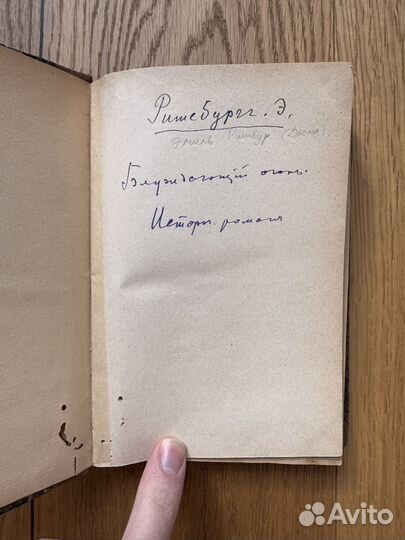 Ришебургг. Э.
Эмиль Ришбур (Дюма)
Блуждающий огонь.
Историч. романъ
Avito